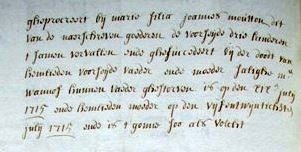 gheprocreert bij marie filia joannes meullen det
van de naerschreven goederen de voorseyde drie kinderen
t samen vervallen ende ghesuccedeert bij der doodt van
hemlieden voorseyde vaeder ende moeder saligher
waerof hunnen vaeder ghestorven is op den july
1715 ende hemlieden moeder op den vijfentwijntichsten
july 1715 ende is t gonne soo als volcht